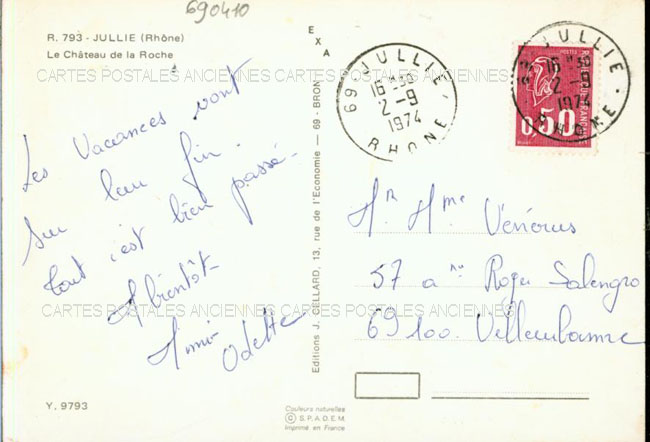 690410
R. 793 - JULLIE (Rhône)
Le Château de la Roche
CARTES POSTALES ANCIENNES CARTES POSTALES ANCIENNES
Les Vacances vont
sur leur fin.
tout c'est bien passé.
A bientôt
Odette
CARTES POSTALES ANCIENNES CARTES POSTALES ANCIENNES
Y. 9793
EXA
Editions J. CELLARD, 13, rue de l'Economie — 69 - BRON
Couleurs naturelles
© S.P.A.D.E.M.
Imprimé en France
69 JULLIE
16 H 30
2-9
1974
RHONE
69 JULLIE
16 H 30
2-9
1974
RHONE
POSTES
0,50
Mr Mme
57 a nu Roger Salengro
69100 Villeurbanne